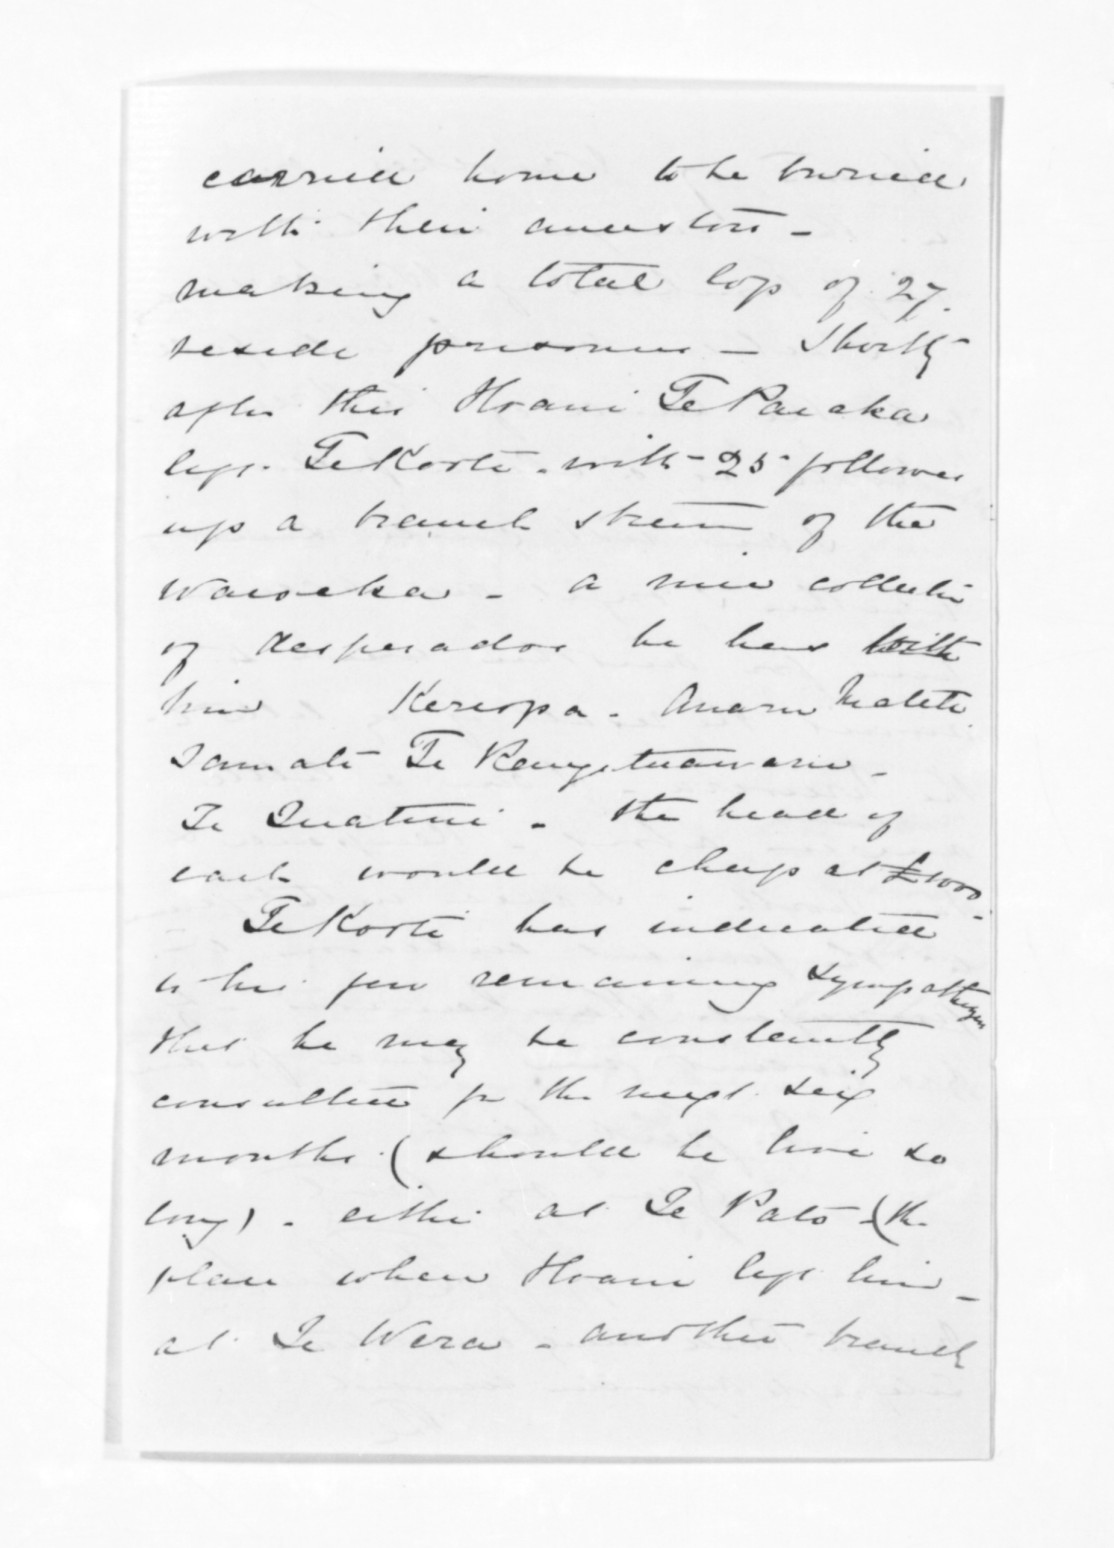 carried home to be buried
with their ancestors -
making a total loss of 27.
beside prisoners - Shortly
after this Hoani Te Paeaka
left Te Kooti - with 25 followers
up a branch stream of the
Waioeka - a nice collection
of desperados he has with
him Kereopa - Anaru Matete
Tamati Te Rangituawaru -
Te Quatini - the head of
each would be cheap at £1000 -
Te Kooti has indicated
to his few remaining sympathizers
that he may be constantly
consulted for the next six
months (should he live so
long) - either at Te Pato - (the
place where Hoani left him -
at Te Wera - another branch